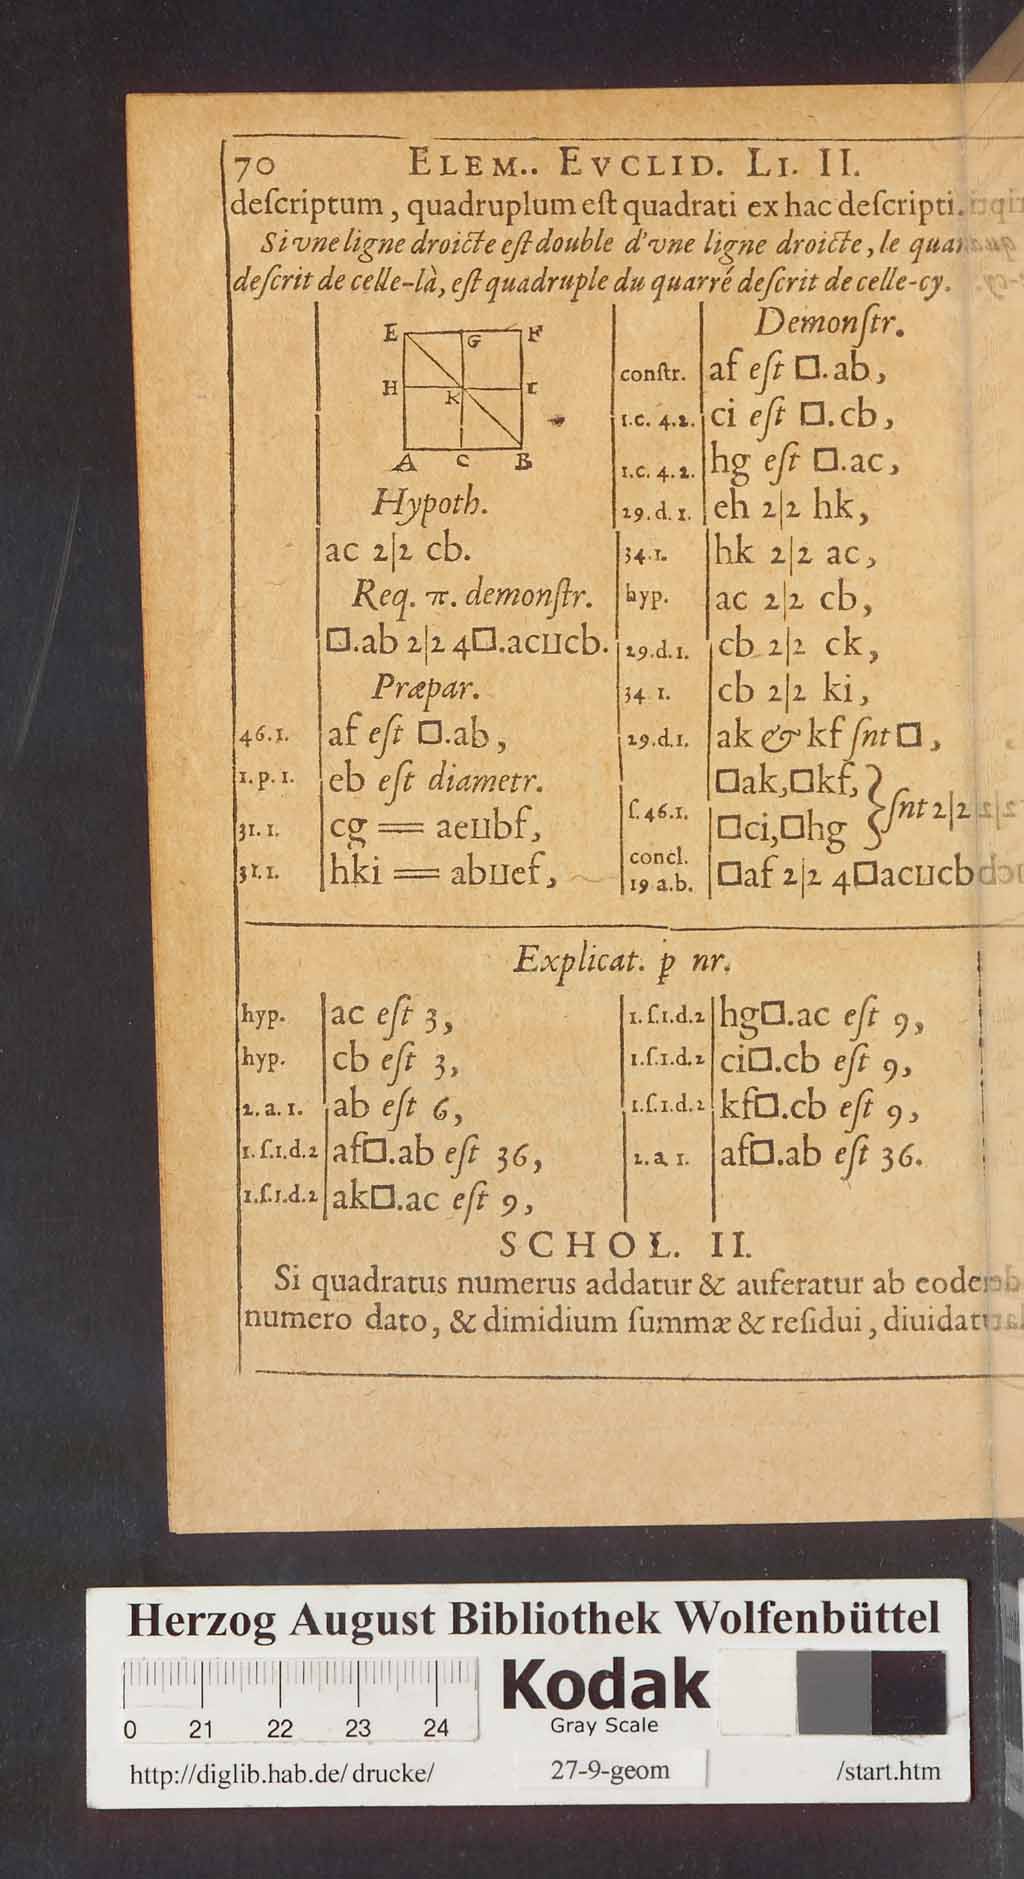 70 ELEM.. EVCLID. LI. II.
deſcriptum, quadruplum eſt quadrati ex hac deſcripti.
Si vne ligne droicte eſt double d'vne ligne droicte, le
deſcrit de celle-là, eſt quadruple du quarré deſcrit de celle-cy.
E G F
H K I
A C B
Hypoth.
ac 2|2 cb.
Req. π. demonſtr.
□.ab 2|2 4□.ac⊔cb.
Præpar.
46.1. af eſt □.ab,
1.p.1. eb eſt diametr.
31.1. cg = ae⊔bf,
31.1. hki = ab⊔ef,
Demonſtr.
conſtr. af eſt □.ab,
1.c.4.2. ci eſt □.cb,
1.c.4.2. hg eſt □.ac,
29.d.1. eh 2|2 hk,
34.1. hk 2|2 ac,
hyp. ac 2|2 cb,
29.d.1. cb 2|2 ck,
34 1. cb 2|2 ki,
29.d.1. ak & kf ſnt □,
□ak,□kf,}
ſ.46.1. □ci,□hg } ſnt 2|2
concl.
19 a.b. □af 2|2 4□ac⊔cb
Explicat. p nr.
hyp. ac eſt 3,
hyp. cb eſt 3,
2.a.1. ab eſt 6,
1.ſ.1.d.2 af□.ab eſt 36,
1.ſ.1.d.2 ak□.ac eſt 9,
1.ſ.1.d.2 hg□.ac eſt 9,
1.ſ.1.d.2 ci□.cb eſt 9,
1.ſ.1.d.2 kf□.cb eſt 9,
2.a 1. af□.ab eſt 36.
SCHOL. II.
Si quadratus numerus addatur & auferatur ab
numero dato, & dimidium ſummæ & reſidui,
Herzog August Bibliothek Wolfenbüttel
0 21 22 23 24
Kodak
Gray Scale
http://diglib.hab.de/drucke/ 27-9-geom /start.htm